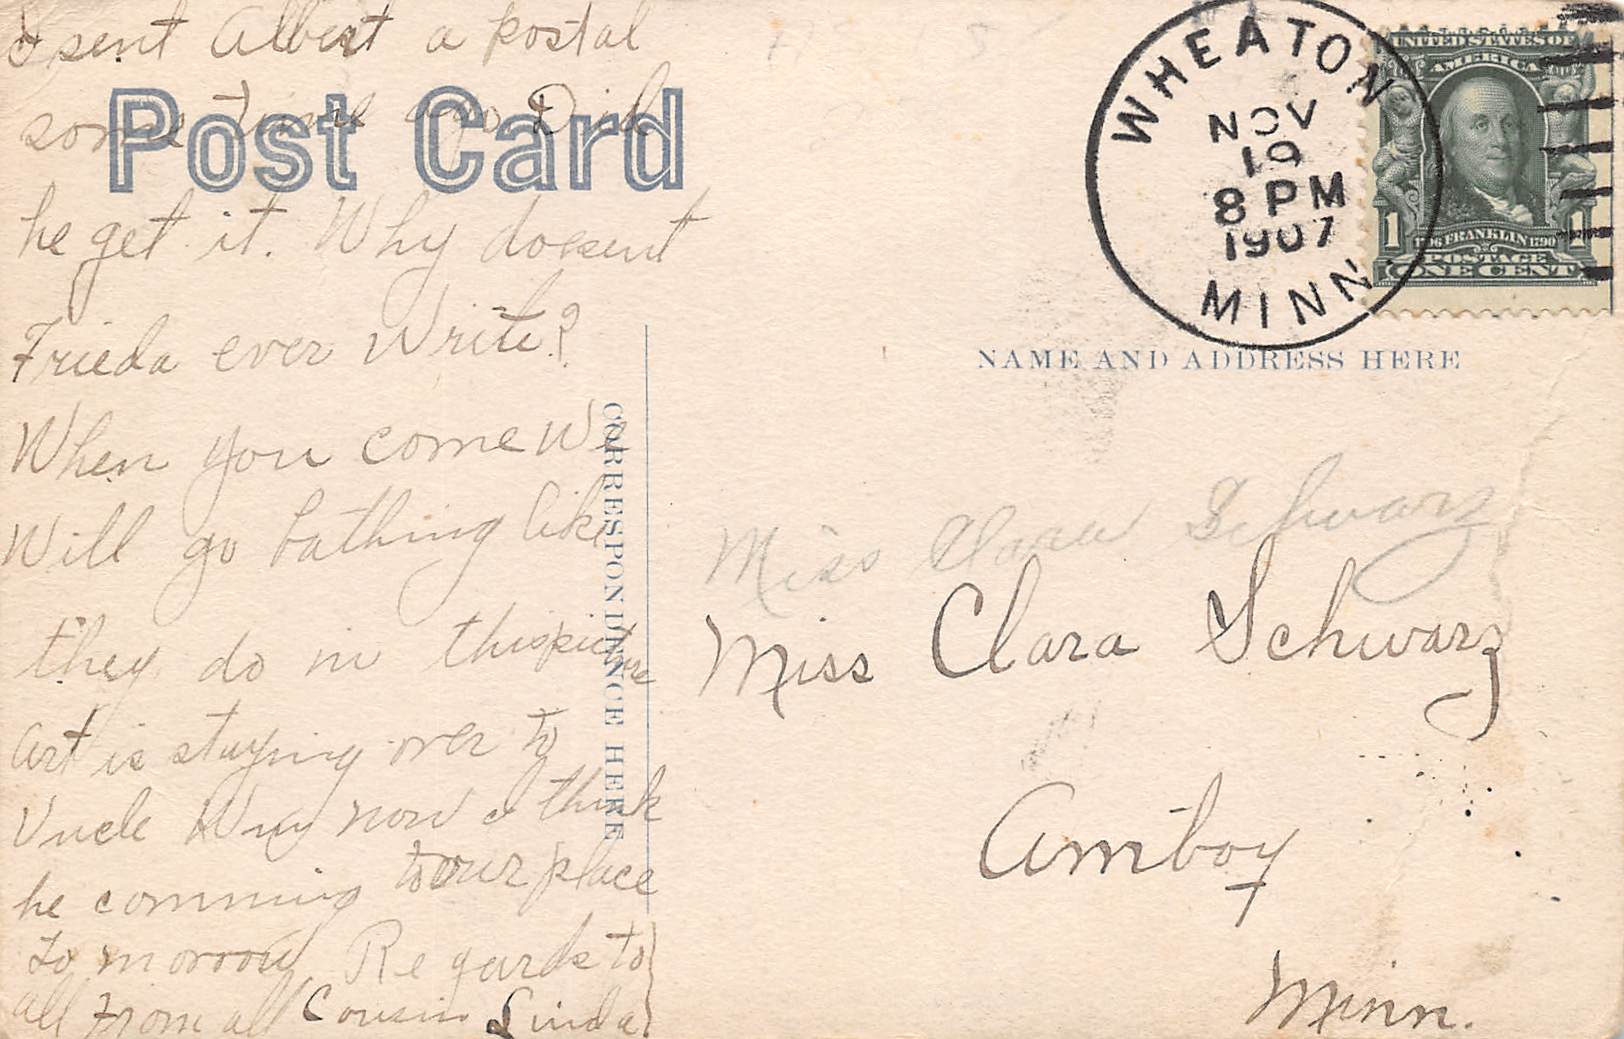 I sent Albert a postal
Post Card
some time ago Did
he get it. Why doesent
Frieda ever Write?
When you come We
Will go bathing like
they do in this picture
Art is staying over to
Uncle Wm now I think
he comming to our place
to morrow Regards to
all From all Cousin Linda
CORRESPONDENCE HERE
WHEATON
NOV
19
8 PM
1907
MINN.
UNITED STATES OF
AMERICA
1 1
FRANKLIN 1790
POSTAGE
ONE CENT
NAME AND ADDRESS HERE
Miss Clara Schwarz
Miss Clara Schwarz
Amboy
Minn.